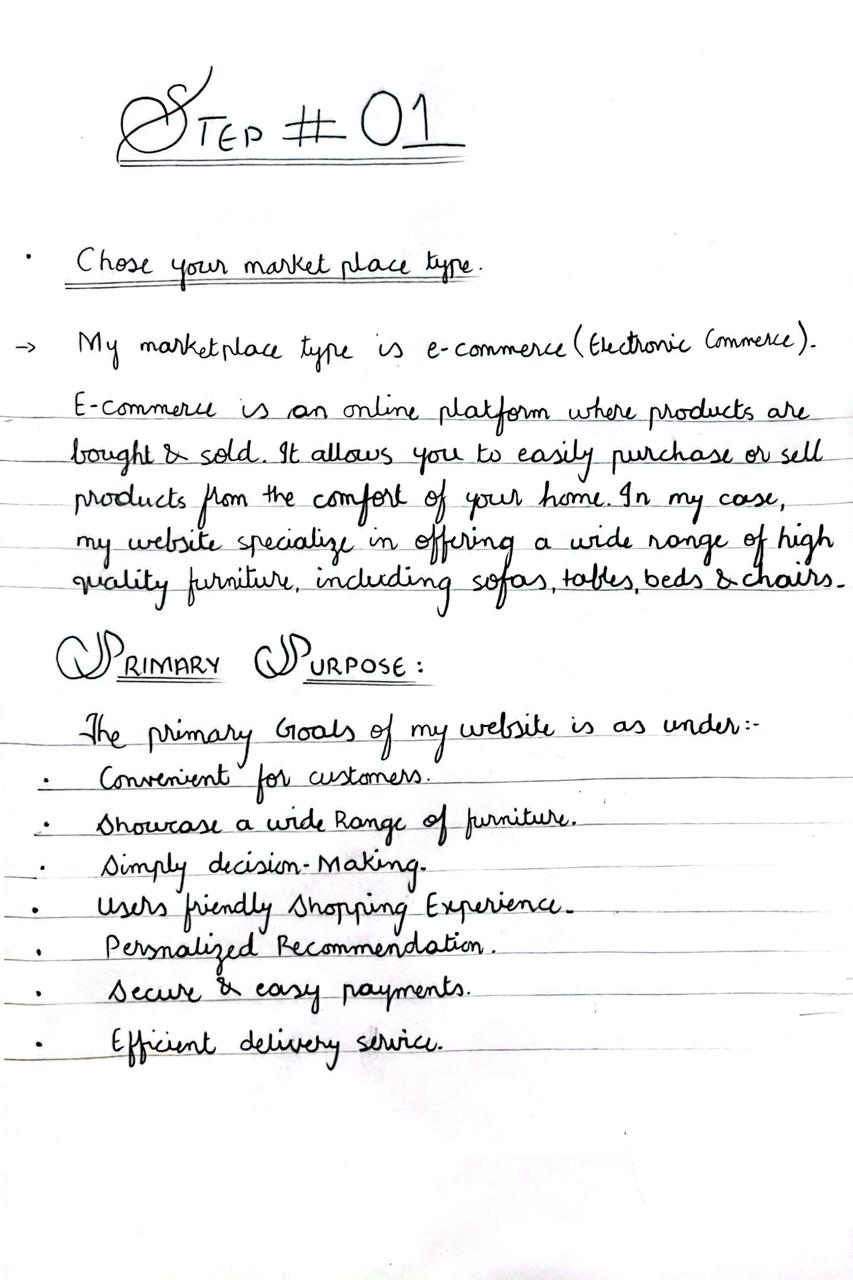 STEP # 01
• Chose your market place type.
→ My marketplace type is e-commerce (Electronic Commerce).
E-commerce is an online platform where products are
bought & sold. It allows you to easily purchase or sell
products from the comfort of your home. In my case,
my website specialize in offering a wide range of high
quality furniture, including sofas, tables, beds & chairs.
PRIMARY PURPOSE:
The primary Goals of my website is as under:-
• Convenient for customers.
• Showcase a wide Range of furniture.
• Simply decision-Making.
• Users friendly Shopping Experience.
• Persnalized Recommendation.
• Secure & easy payments.
• Efficient delivery service.